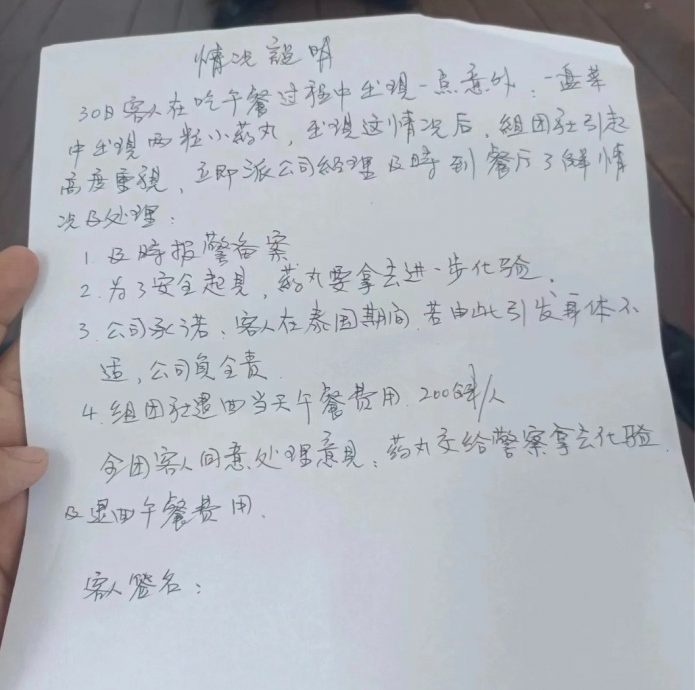 情况說明
30日客人在吃午餐过程中出现一点意外：一盘菜
中出现两粒小药丸，出现这情况后，组团社引起
高度重視，立即派公司经理及時到餐厅了解情
况及处理：
1 及時报警备案
2. 为了安全起見，药丸要拿去进一步化验。
3. 公司承诺、客人在泰国期间.若由此引发身体不
适，公司负全责.
4. 组团社退回当天午餐费用.200铢/人
全团客人同意处理意見：药丸交给警察拿去化验
及退回午餐费用.
客人签名：